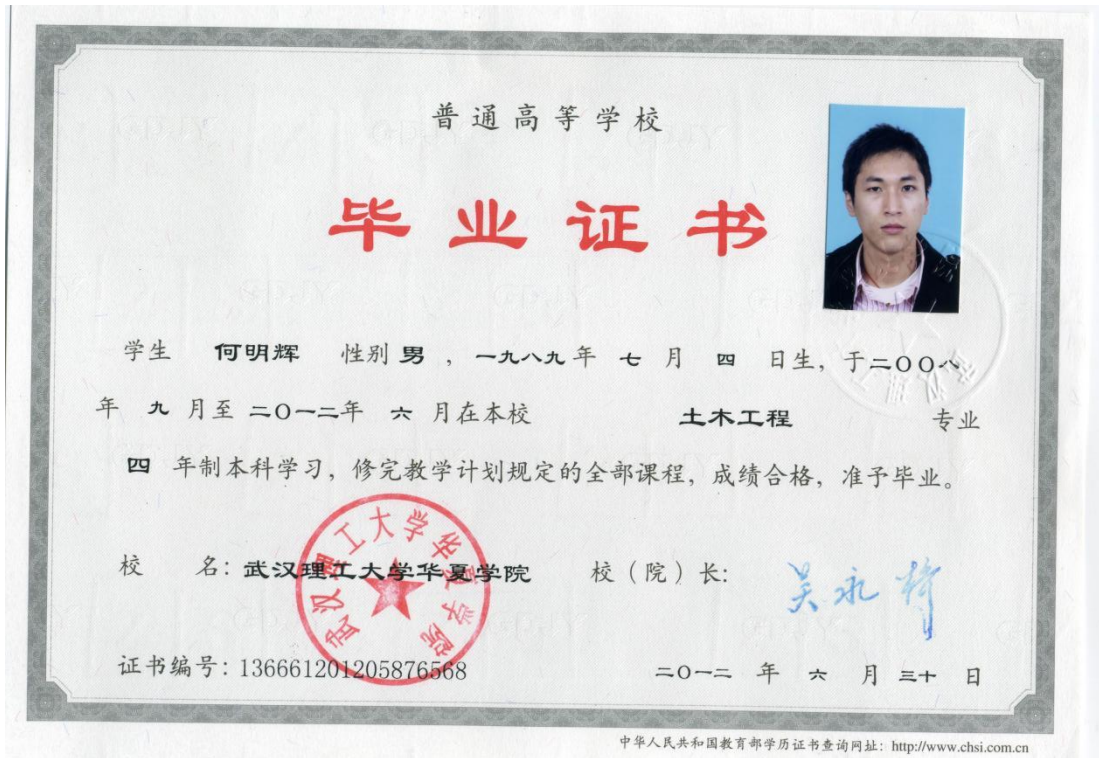 普通高等学校
毕业证书
学生 何明辉 性别 男 ，一九八九年 七 月 四 日生，于二〇〇八
年 九 月至 二〇一二年 六 月在本校 土木工程 专业
四 年制本科学习，修完教学计划规定的全部课程，成绩合格，准予毕业。
校 名：武汉理工大学华夏学院 校（院）长：
武汉理工大学华夏学院
证书编号：136661201205876568 二〇一二 年 六 月 三十 日
中华人民共和国教育部学历证书查询网址：http://www.chsi.com.cn